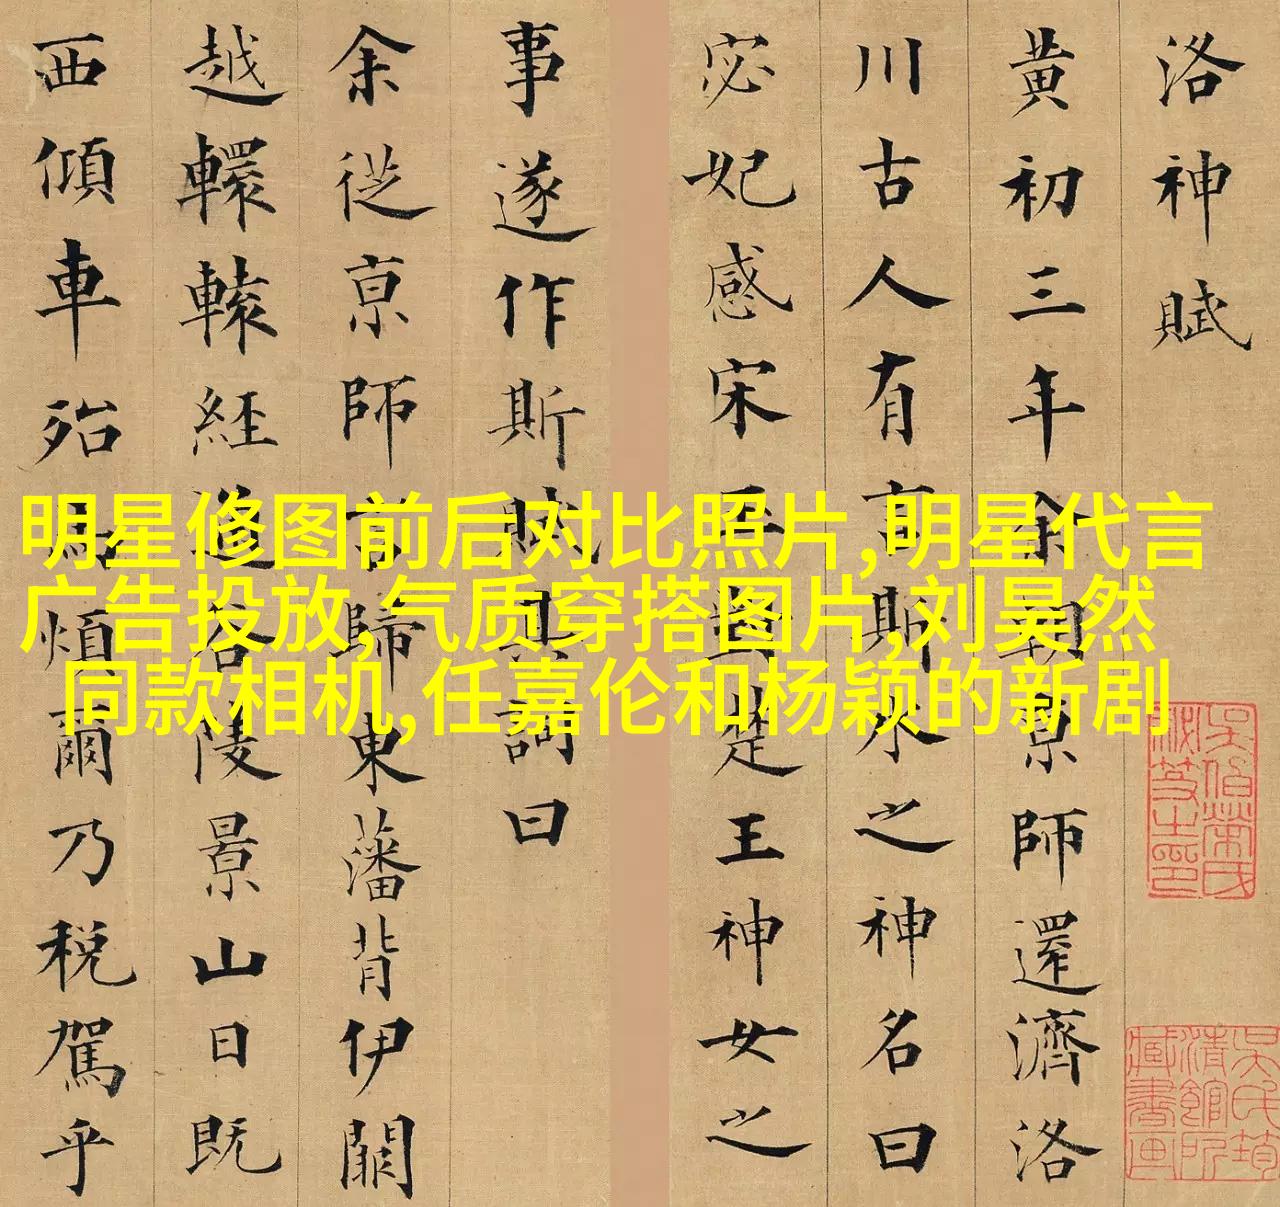 洛神賦
黄初三年余朝亰師還濟洛
川古人有言斯水之神名曰
宓妃感宋玉對楚王神女之
事遂作斯賦其詞曰
余從亰師言歸東藩背伊闕
越轘轅經通谷陵景山日既
西傾車殆馬煩爾乃税駕乎
明星修图前后对比照片,明星代言
广告投放,气质穿搭图片,刘昊然
同款相机,任嘉伦和杨颖的新剧